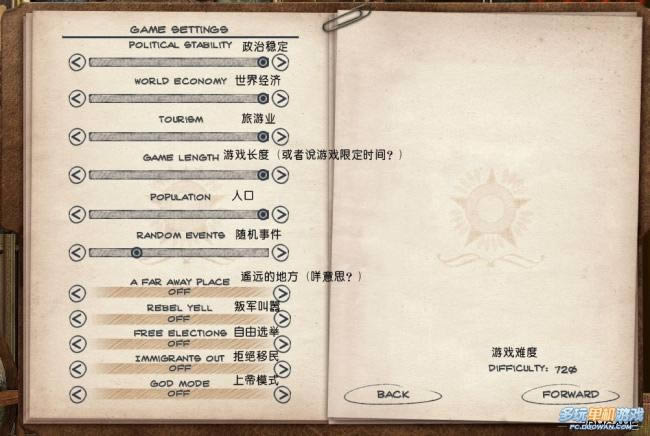 GAME SETTINGS
POLITICAL STABILITY 政治稳定
WORLD ECONOMY 世界经济
TOURISM 旅游业
GAME LENGTH 游戏长度（或者说游戏限定时间？）
POPULATION 人口
RANDOM EVENTS 随机事件
A FAR AWAY PLACE 遥远的地方（咩意思？）
OFF
REBEL YELL 叛军叫嚣
OFF
FREE ELECTIONS 自由选举
OFF
IMMIGRANTS OUT 拒绝移民
OFF
GOD MODE 上帝模式
OFF
游戏难度
DIFFICULTY: 72%
BACK
FORWARD
多玩单机游戏
PC.DUOWAN.COM